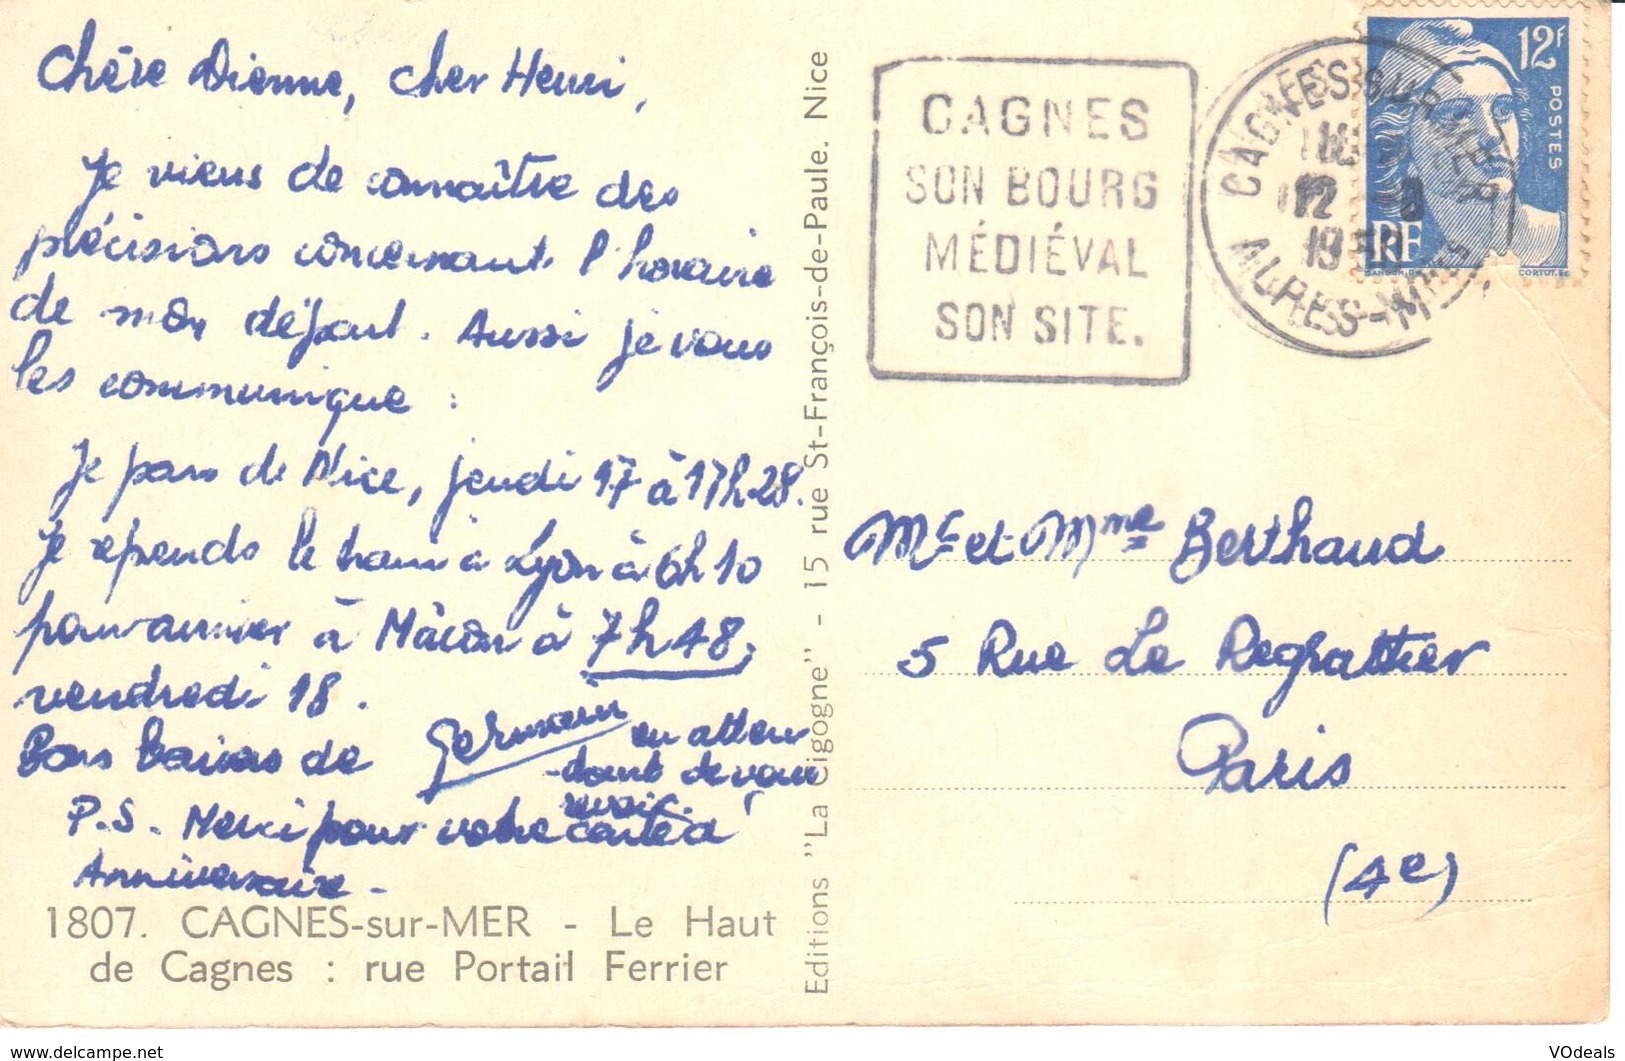 Chère Dienne, cher Henri,
Je viens de connaître des
précisions concernant l'horaire
de mon départ. Aussi je vous
les communique :
Je pars de Nice, jeudi 17 à 17h28.
Je reprends le train à Lyon à 6h10
pour arriver à Mâcon à 7h48,
vendredi 18.
Bons baisers de Germain en atten
dant de vous
revoir.
P.S. Merci pour votre carte d'
Anniversaire -
1807. CAGNES-sur-MER - Le Haut
de Cagnes : rue Portail Ferrier
Editions "La Cigogne" - 15 rue St-François-de-Paule. Nice
CAGNES
SON BOURG
MÉDIÉVAL
SON SITE.
CAGNES-SUR-MER
12
19
ALPES-MMES
12F
POSTES
RF
GANDON
CORTOT.
Mr et Mme Berthaud
5 Rue Le Regrattier
Paris
(4e)
VOdeals
www.delcampe.net